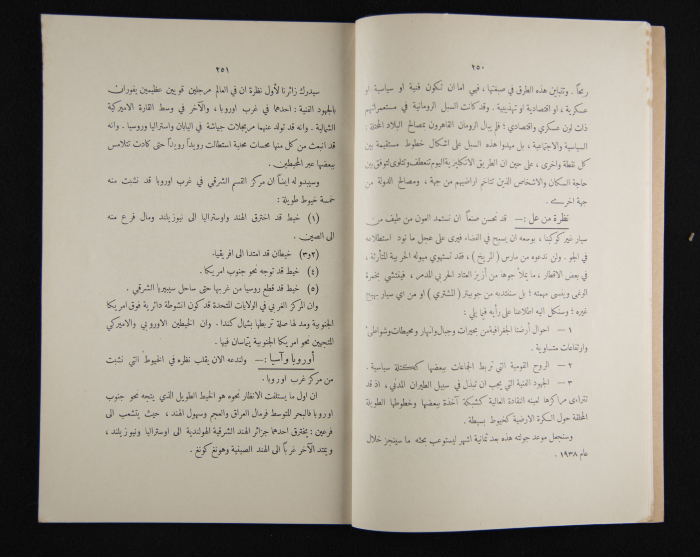 ٢٥٠
رمحاً . وتتباين هذه الطرق في صبغتها ، فهي اما ان تكون فنية او سياسية او
عسكرية ، او اقتصادية او تهذيبية . وقد كانت السبل الرومانية في مستعمراتهم
ذات لون عسكري واقتصادي ؛ فلم يبال الرومان القاهرون بمصالح البلاد
السياسية والاجتماعية ، بل مهدوا هذه السبل على اشكال خطوط مستقيمة بين
كل نقطة واخرى ، على حين ان الطريق الانكليزية اليوم تنعطف وتتلوى لتوفق بين
حاجة السكان والاشخاص الذين تتاخم اراضيهم من جهة ، ومصالح الدولة من
جهة اخرى .
نظرة من عل : — قد نحسن صنعاً ان نستمد العون من طيف من
سيار غير كوكبنا ، بوسعه ان يسبح في الفضاء فيرى على عجل ما نود استطلاعه
في الجو . ولن ندعوه من مارس ( المريخ ) ، فقد تستهوي ميوله الحربية المتأرثة ،
في بعض الاقطار ، ما يملأ جوها من أزيز العتاد الحربي المدمر ، فينتشي بخمرة
الوغى وينسى مهمته ؛ بل سننتدبه من جوبيتر ( المشتري ) او من اي سيار بهيج
غيره ؛ وسنكل اليه اطلاعنا على رأيه فيما يلي :
١ — احوال أرضنا الجغرافية من بحيرات وجبال وانهار ومحيطات وشواطىء
وارتفاعات متساوية .
٢ — الروح القومية التي تربط الجماعات بعضها ككتلة سياسية .
٣ — الجهود الفنية التي يجب ان تبذل في سبيل الطيران المدني ، اذ قد
تتراءى مراكزها لعينه النقادة العالية كشبكة آخذة ببعضها وخطوطها الطويلة
المحلقة حول الكرة الارضية كخيوط بسيطة .
وسنجعل موعد جولته هذه بعد ثمانية اشهر ليستوعب بحثه ما سينجز خلال
عام ١٩٣٨ .
٢٥١
سيدرك زائرنا لأول نظرة ان في العالم مرجلين قويين عظيمين يفوران
بالجهود الفنية : احدهما في غرب اوروبا ، والآخر في وسط القارة الاميركية
الشمالية . وانه قد تولد عنهما مريجلات جياشة في اليابان واستراليا وروسيا . وانه
قد انبعث من كل منها مجسات محبسة استطالت رويداً رويداً حتى كادت تتلامس
ببعضها عبر المحيطين .
وسيبدو له ايضاً ان مركز القسم الشرقي في غرب اوروبا قد نشبت منه
خمسة خيوط طويلة :
(١) خيط قد اخترق الهند واوستراليا الى نيوزيلند ومال فرع منه
الى الصين .
(٢و٣) خيطان قد امتدا الى افريقيا.
(٤) خيط قد توجه نحو جنوب اميركا .
(٥) خيط قد قطع روسيا من غربها حتى ساحل سيبيريا الشرقي .
وان المركز الغربي في الولايات المتحدة قد كون انشوطة دائرية فوق اميركا
الجنوبية ومد لها صلة تربطها بشمال كندا . وان الخيطين الاوروبي والاميركي
المتجهين نحو اميركا الجنوبية يتماسان فيها .
أوروبا وآسيا : — ولندعه الان يقلب نظره في الخيوط التي نشبت
من مركز غرب اوروبا .
ان اول ما يستلفت الانظار نحوه هو الخيط الطويل الذي يتجه نحو جنوب
اوروبا فالبحر المتوسط فرمال العراق والعجم وسهول الهند ، حيث يتشعب الى
فرعين : يخترق احدهما جزائر الهند الشرقية الهولندية الى اوستراليا ونيوزيلند ،
ويمتد الآخر غرباً الى الهند الصينية وهونغ كونغ .